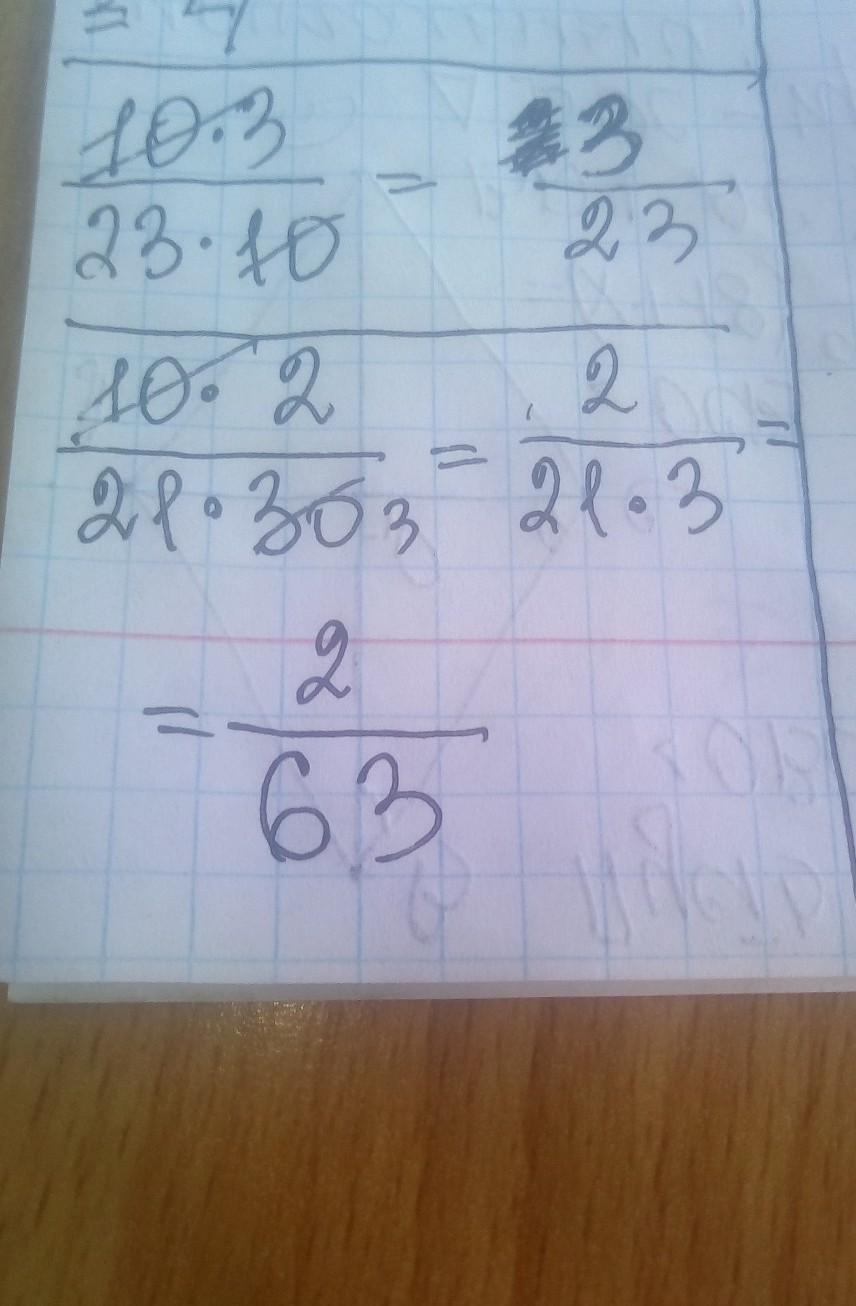 = 4
10·3/23·10 = 3/23
10·2/21·30 3 = 2/21·3 =
= 2/63